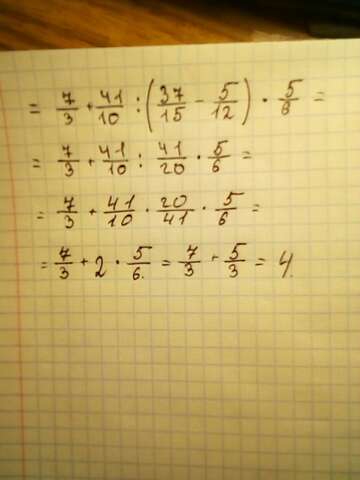 = 7/3 + 41/10 : (37/15 - 5/12) · 5/6 =
= 7/3 + 41/10 : 41/20 · 5/6 =
= 7/3 + 41/10 · 20/41 · 5/6 =
= 7/3 + 2 · 5/6. = 7/3 + 5/3 = 4.